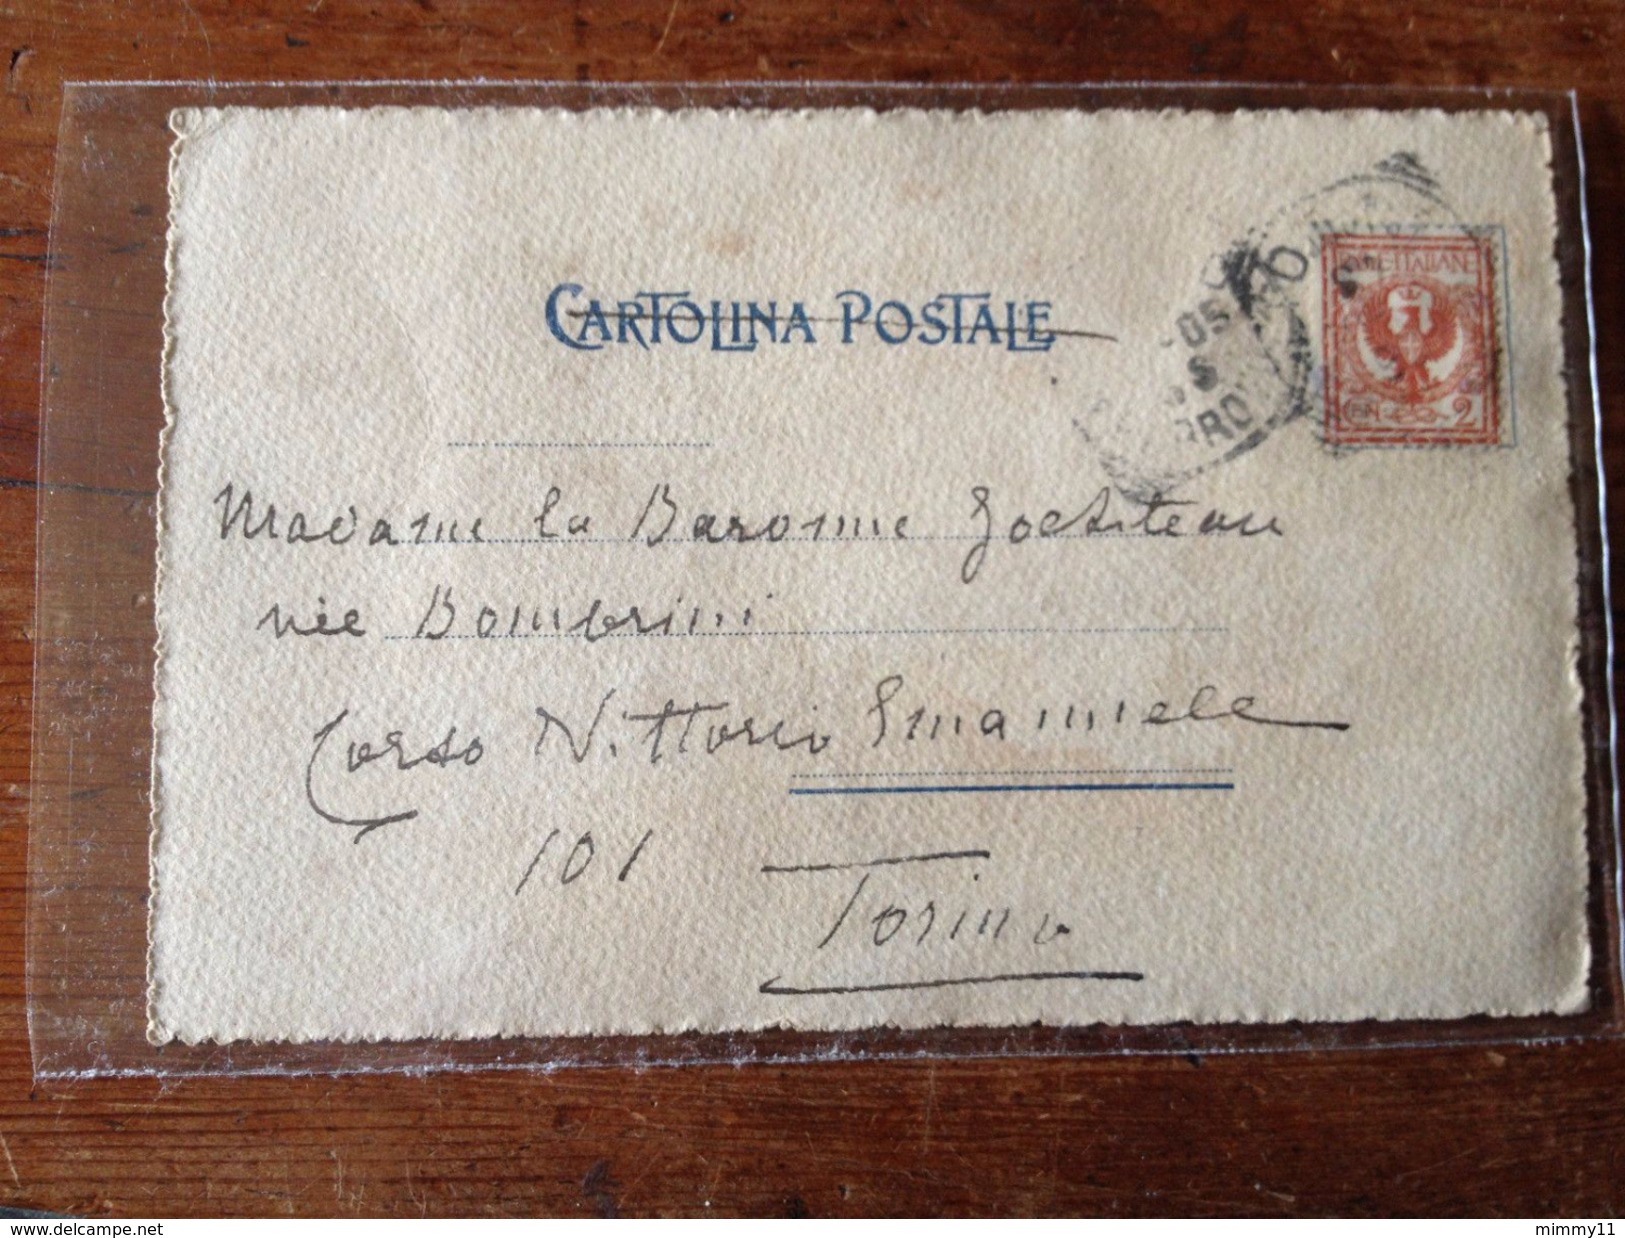 CARTOLINA POSTALE
POSTE ITALIANE
CEN 2
Madame la Baronne
née Bombrini
Corso Vittorio Emanuele
101
Torino
www.delcampe.net
mimmy11